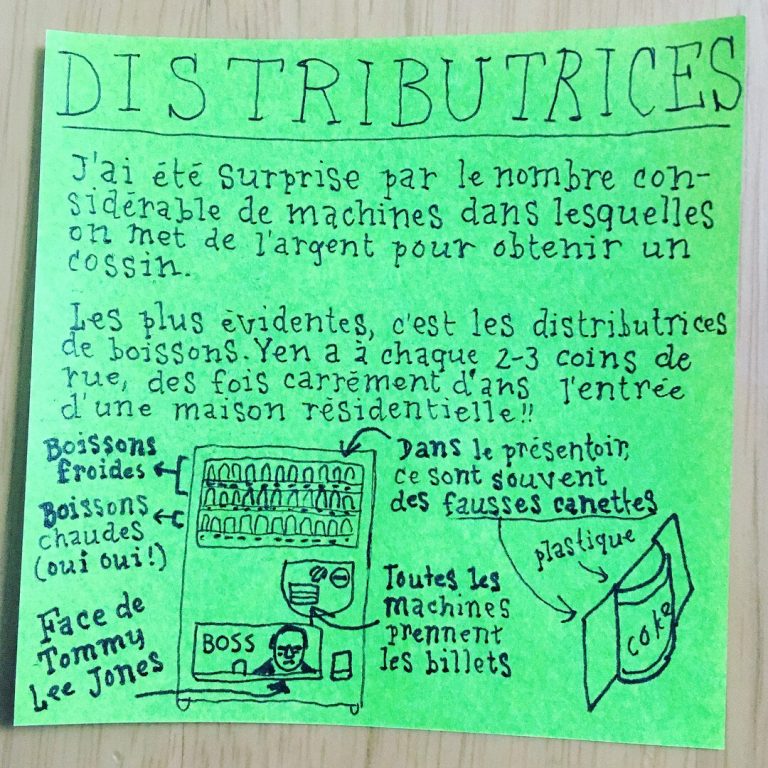 DISTRIBUTRICES
J'ai été surprise par le nombre con-
sidérable de machines dans lesquelles
on met de l'argent pour obtenir un
cossin.
Les plus évidentes, c'est les distributrices
de boissons. Yen a à chaque 2-3 coins de
rue, des fois carrément d'ans l'entrée
d'une maison résidentielle!!
Boissons
froides
Boissons
chaudes
(oui oui!)
Face de
Tommy
Lee Jones
BOSS
Dans le présentoir,
ce sont souvent
des fausses canettes
plastique
coke
Toutes les
machines
prennent
les billets